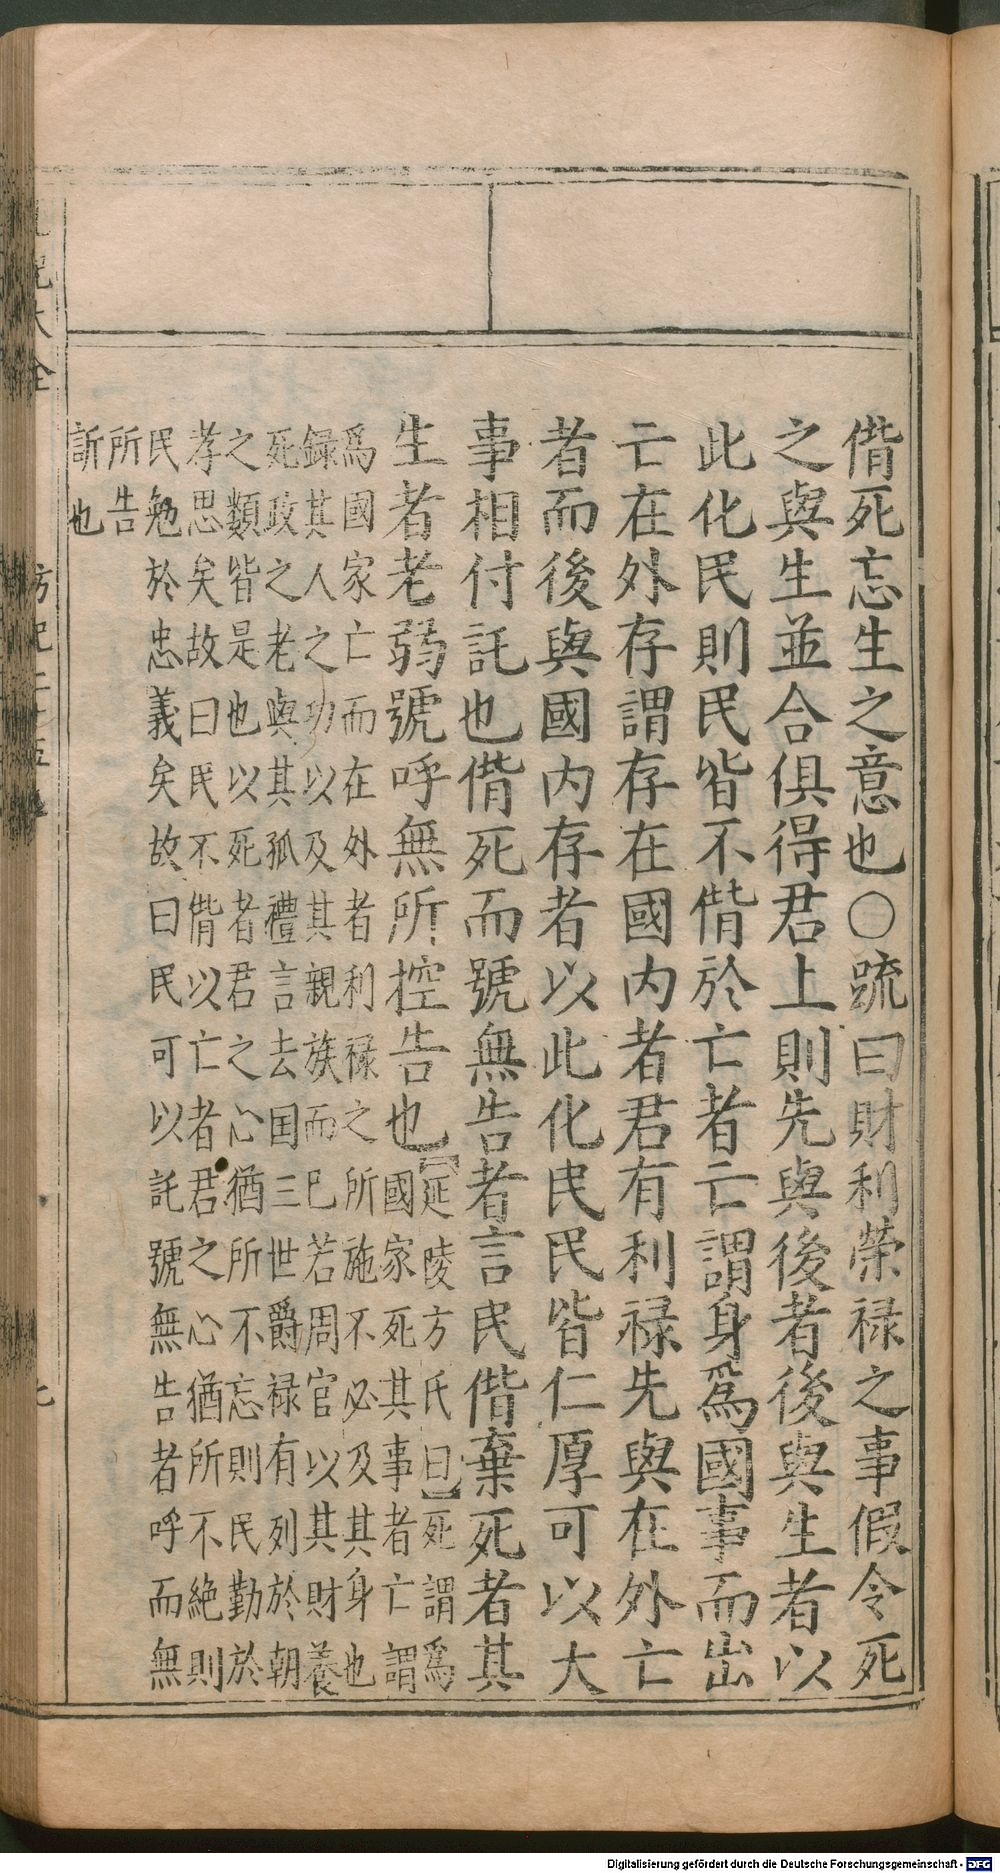 偝死忘生之意也○䟽曰財利榮禄之事假令死
之與生並合俱得君上則先與後者後與生者以
此化民則民皆不偝於亡者亡謂身爲國事而出
亡在外存謂存在國内者君有利禄先與在外亡
者而後與國内存者以此化民民皆仁厚可以大
事相付託也偝死而號無告者言民偝棄死者其
生者老弱號呼無所控告也【延陵方氏曰】死謂爲
國家死其事者亡謂
爲國家亡而在外者利禄之所施不必及其身也
録其人之功以及其親族而已若周官以其財養
死政之老與其孤禮言去国三世爵禄有列於朝
之類皆是也以死者君之心猶所不忘則民勤於
孝思矣故曰民不偝以亡者君之心猶所不絶則
民勉於忠義矣故曰民可以託號無告者呼而無
所告
訴也
大全
Digitalisierung gefördert durch die Deutsche Forschungsgemeinschaft - DFG